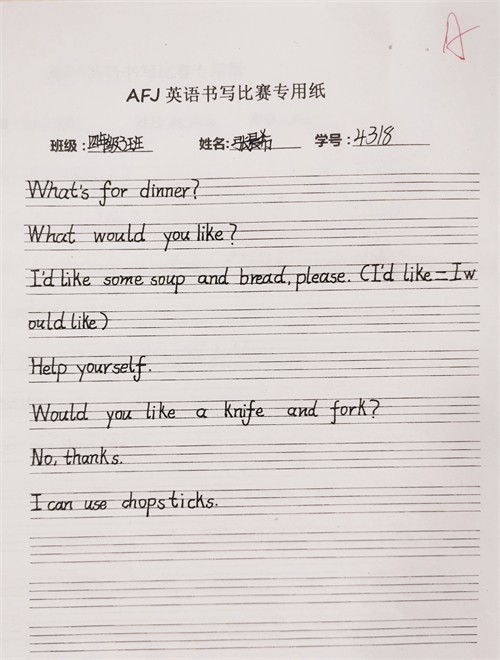 A
AFJ 英语书写比赛专用纸
班级:四年级3班 姓名:张晨希 学号:4318
What's for dinner?
What would you like?
I'd like some soup and bread, please. (I'd like=I w
ould like)
Help yourself.
Would you like a knife and fork?
No, thanks.
I can use chopsticks.